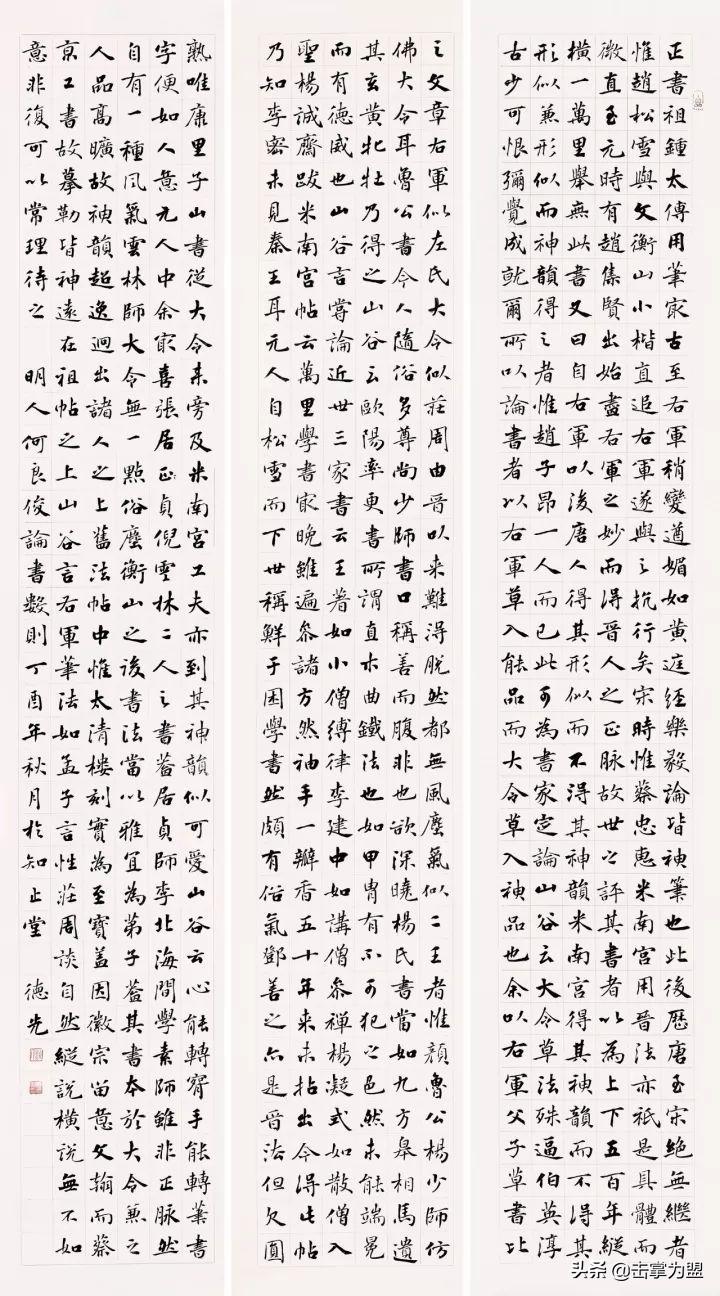 正書祖鍾太傅用筆冣古至右軍稍變遒媚如黃庭經樂毅論皆神筆也此後歷唐至宋絕無繼者
惟趙松雪與文衡山小楷直追右軍遂與之抗行矣宋時惟蔡忠惠米南宮用晉法亦祇是具體而
微直至元時有趙集賢出始盡右軍之妙而得晉人之正脉故世之評其書者以為上下五百年縱
橫一萬里舉無此書又曰自右軍以後唐人得其形似而不得其神韻米南宮得其神韻而不得其
形似兼形似而神韻得之者惟趙子昂一人而已此可為書家定論山谷云大令草法殊逼伯英淳
古少可恨彌覺成就爾所以論書者以右軍草入能品而大令草入神品也余以右軍父子草書比
之文章右軍似左氏大令似莊周由晉以来難得脫然都無風塵氣似二王者惟顏魯公楊少師仿
佛大令耳魯公書令人隨俗多尊尚少師書口稱善而腹非也欲深曉楊氏書當如九方皋相馬遺
其玄黃牝牡乃得之山谷云歐陽率更書所謂直木曲鐵法也如甲冑有不可犯之色然未能端冕
而有德威也山谷言嘗論近世三家書云王著如小僧縛律李建中如講僧參禪楊凝式如散僧入
聖楊誠齋跋米南宮帖云萬里學書冣晚雖遍參諸方然袖手一瓣香五十年来未拈出今得此帖
乃知李密未見秦王耳元人自松雪而下世稱鮮于困學書然頗有俗氣鄧善之亦是晉法但欠圓
熟唯康里子山書從大令来旁及米南宮工夫亦到其神韻似可愛山谷云心能轉手能轉筆書
字便如人意元人中余冣喜張居正貞倪雲林二人之書蓋居貞師李北海間學素師雖非正脉然
自有一種風氣雲林師大令無一點俗塵衡山之後書法當以雅宜為第子蓋其書本於大令兼之
人品高曠故神韻超逸迥出諸人之上舊法帖中惟太清樓刻實為至寶蓋因徽宗留意文翰而蔡
京工書故摹勒皆神遠在祖帖之上山谷言右軍筆法如孟子言性莊周談自然縱說橫說無不如
意非復可以常理待之 明人何良俊論書數則丁酉年秋月於知止堂 德光
头条 @击掌为盟